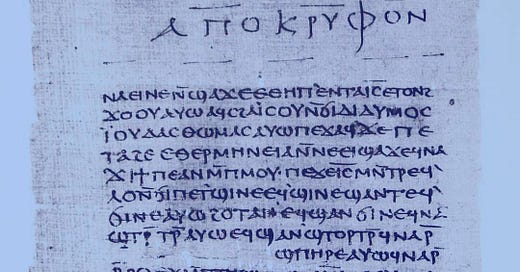 ⲁⲡⲟⲕⲣⲩⲫⲟⲛ
ⲛⲁⲉⲓⲛⲉⲛ̄ϣⲁϫⲉⲉⲑⲏⲡⲉⲛⲧⲁⲓ̄ⲥ̄ⲉⲧⲟⲛϩ
ϫⲟⲟⲩⲁⲩⲱⲁϥⲥϩⲁⲓⲥⲟⲩⲛ̄ϭⲓⲇⲓⲇⲩⲙⲟⲥ
ⲓ̈ⲟⲩⲇⲁⲥⲑⲱⲙⲁⲥⲁⲩⲱⲡⲉϫⲁϥϫⲉⲡⲉ
ⲧⲁϩⲉⲉⲑⲉⲣⲙⲏⲛⲉⲓⲁⲛ̄ⲛⲉⲉⲓϣⲁϫⲉϥⲛⲁ
ϫⲓϯⲡⲉⲁⲛⲙ̄ⲡⲙⲟⲩ·ⲡⲉϫⲉⲓ̄ⲥ̄ⲙⲛ̄ⲧⲣⲉϥ
ⲗⲟⲛ̄ϭⲓⲡⲉⲧϣⲓⲛⲉⲉϥϣⲓⲛⲉϣⲁⲛⲧⲉϥ
ϭⲓⲛⲉⲁⲩⲱϩⲟⲧⲁⲛⲉϥϣⲁⲛϭⲓⲛⲉϥⲛⲁ
ϣⲧⲣ̄ⲧⲣ̄ⲁⲩⲱⲉϥϣⲁⲛϣⲧⲟⲣⲧⲣ̄ϥⲛⲁⲣ̄
ϣⲡⲏⲣⲉⲁⲩⲱϥⲛⲁⲣ̄